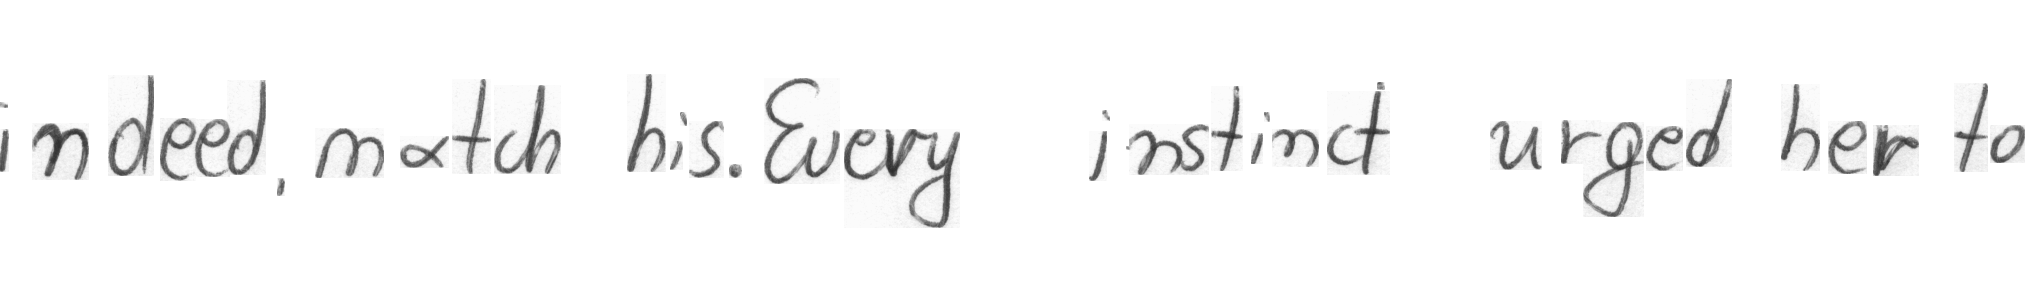 indeed, match his. Every instinct urged her to